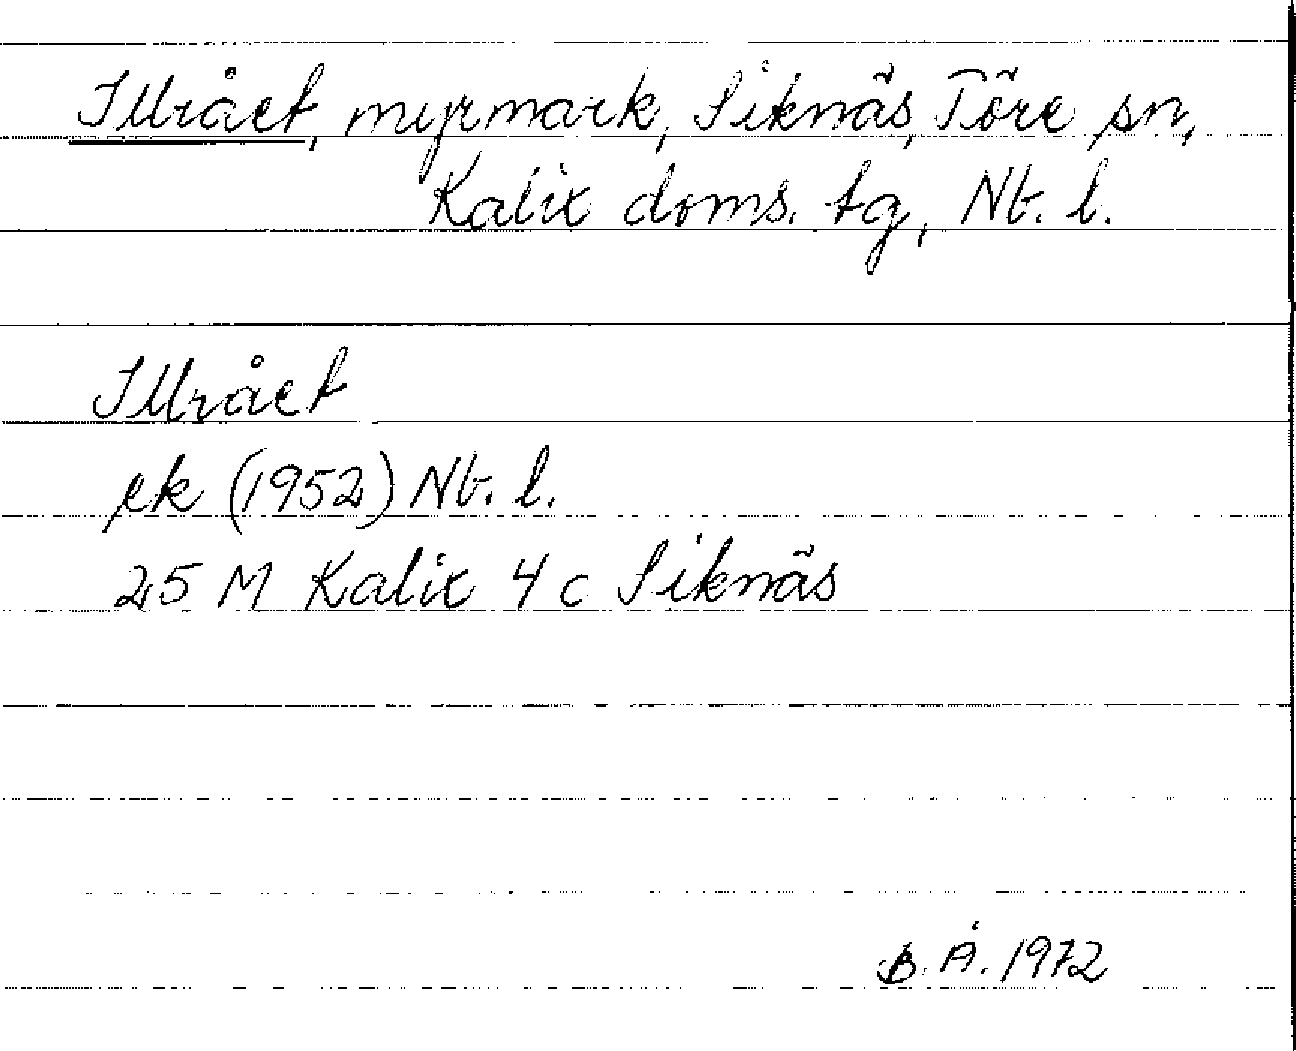 Illrået, myrmark, Siknäs, Töre sn,
Kalix doms. tg, Nb. l.
Illrået
ek (1952) Nb. l.
25 M Kalix 4 c Siknäs
B. Å. 1972